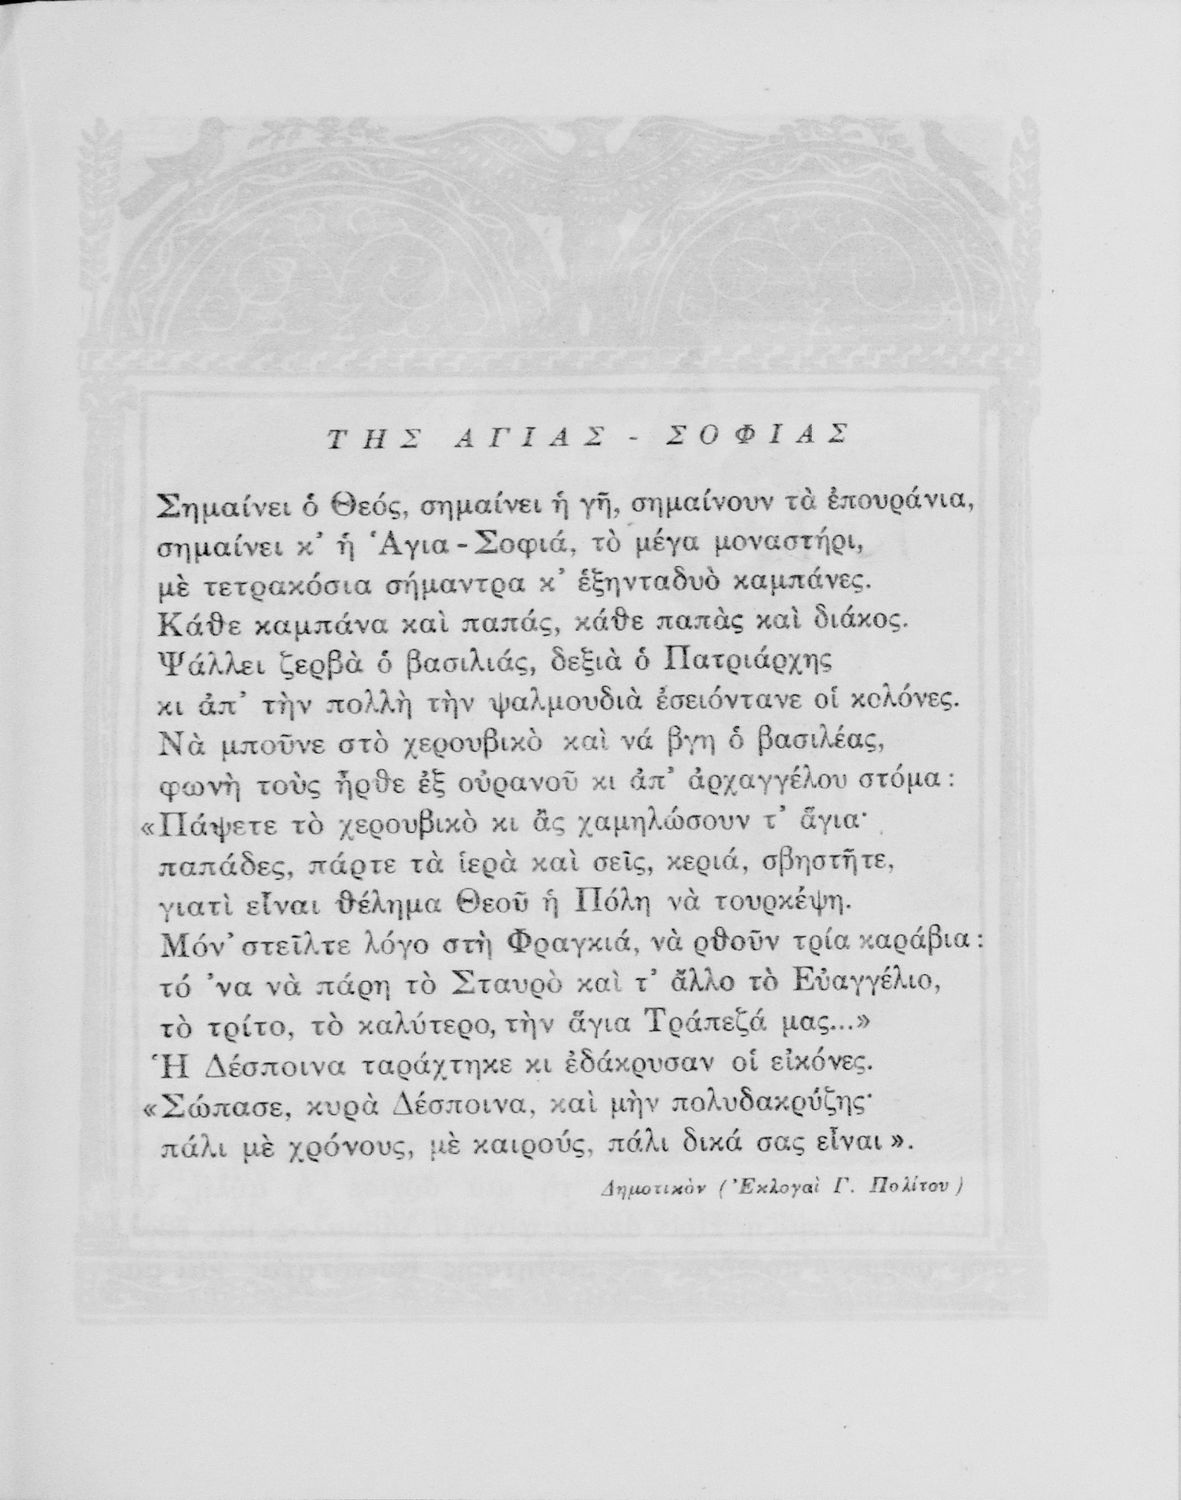 ΤΗΣ ΑΓΙΑΣ - ΣΟΦΙΑΣ
Σημαίνει ὁ Θεός, σημαίνει ἡ γῆ, σημαίνουν τὰ ἐπουράνια,
σημαίνει κ’ ἡ Ἁγια - Σοφιά, τὸ μέγα μοναστήρι,
μὲ τετρακόσια σήμαντρα κ’ ἑξηνταδυὸ καμπάνες.
Κάθε καμπάνα καὶ παπάς, κάθε παπὰς καὶ διάκος.
Ψάλλει ζερβὰ ὁ βασιλιάς, δεξιὰ ὁ Πατριάρχης
κι ἀπ’ τὴν πολλὴ τὴν ψαλμουδιὰ ἐσειόντανε οἱ κολόνες.
Νὰ μποῦνε στὸ χερουβικὸ καὶ νά βγη ὁ βασιλέας,
φωνὴ τοὺς ἦρθε ἐξ οὐρανοῦ κι ἀπ’ ἀρχαγγέλου στόμα :
«Πάψετε τὸ χερουβικὸ κι ἂς χαμηλώσουν τ’ ἅγια·
παπάδες, πάρτε τὰ ἱερὰ καὶ σεῖς, κεριά, σβηστῆτε,
γιατὶ εἶναι θέλημα Θεοῦ ἡ Πόλη νὰ τουρκέψη.
Μόν’ στεῖλτε λόγο στὴ Φραγκιά, νὰ ρθοῦν τρία καράβια :
τό ’να νὰ πάρη τὸ Σταυρὸ καὶ τ’ ἄλλο τὸ Εὐαγγέλιο,
τὸ τρίτο, τὸ καλύτερο, τὴν ἅγια Τράπεζά μας...»
Ἡ Δέσποινα ταράχτηκε κι ἐδάκρυσαν οἱ εἰκόνες.
«Σώπασε, κυρὰ Δέσποινα, καὶ μὴν πολυδακρύζης·
πάλι μὲ χρόνους, μὲ καιρούς, πάλι δικά σας εἶναι ».
Δημοτικὸν (Ἐκλογαὶ Γ. Πολίτου)